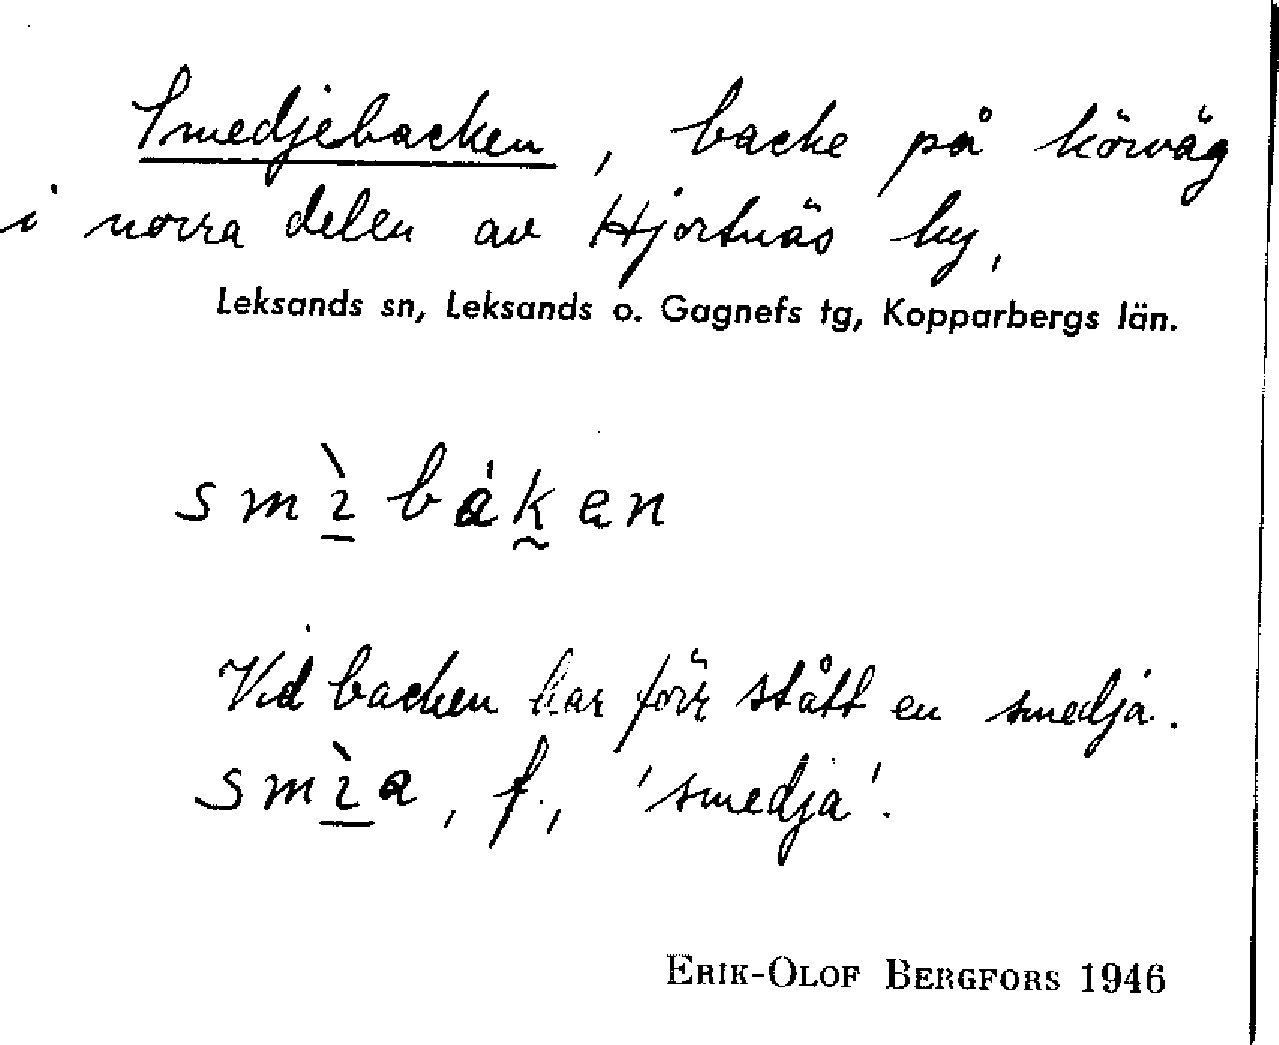 Smedjebacken, backe på körväg
i norra delen av Hjortnäs by,
Leksands sn, Leksands o. Gagnefs tg, Kopparbergs län.
smı̀båken
Vid backen har förr stått en smedja.
smı̀a, f., 'smedja'.
ERIK-OLOF BERGFORS 1946